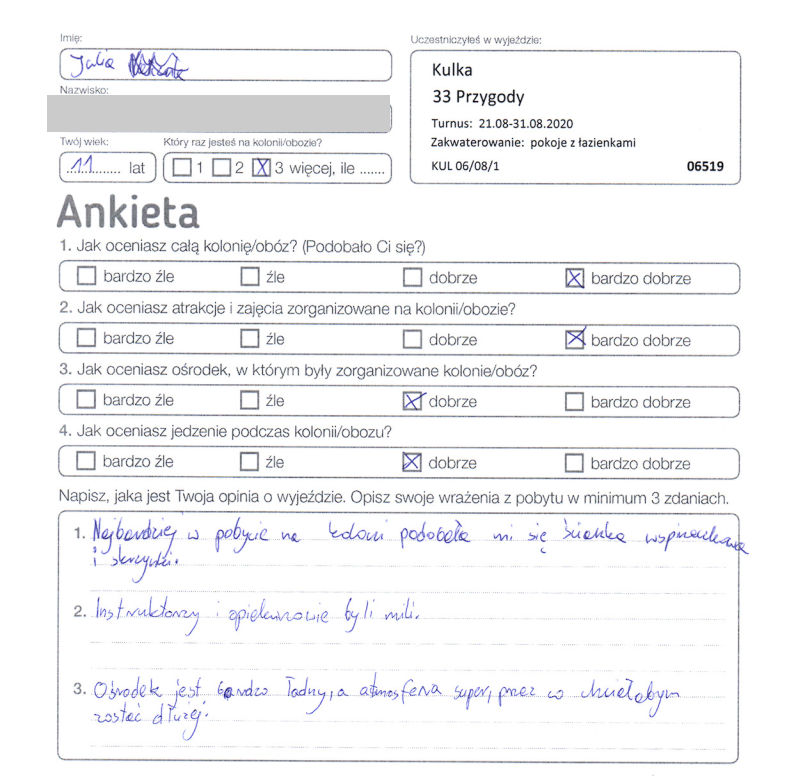 Imię:
Julia
Nazwisko:
Twój wiek:
11 lat
Który raz jesteś na kolonii/obozie?
1 2 3 więcej, ile .......
Uczestniczyłeś w wyjeździe:
Kulka
33 Przygody
Turnus: 21.08-31.08.2020
Zakwaterowanie: pokoje z łazienkami
KUL 06/08/1 06519
Ankieta
1. Jak oceniasz całą kolonię/obóz? (Podobało Ci się?)
bardzo źle źle dobrze bardzo dobrze
2. Jak oceniasz atrakcje i zajęcia zorganizowane na kolonii/obozie?
bardzo źle źle dobrze bardzo dobrze
3. Jak oceniasz ośrodek, w którym były zorganizowane kolonie/obóz?
bardzo źle źle dobrze bardzo dobrze
4. Jak oceniasz jedzenie podczas kolonii/obozu?
bardzo źle źle dobrze bardzo dobrze
Napisz, jaka jest Twoja opinia o wyjeździe. Opisz swoje wrażenia z pobytu w minimum 3 zdaniach.
1. Najbardziej w pobycie na koloni podobała mi się ścianka wspinaczkowa
i skrzynki.
2. Instruktorzy i opiekunowie byli mili.
3. Ośrodek jest bardzo ładny, a atmosfera super, przez co chciałabym
zostać dłużej.